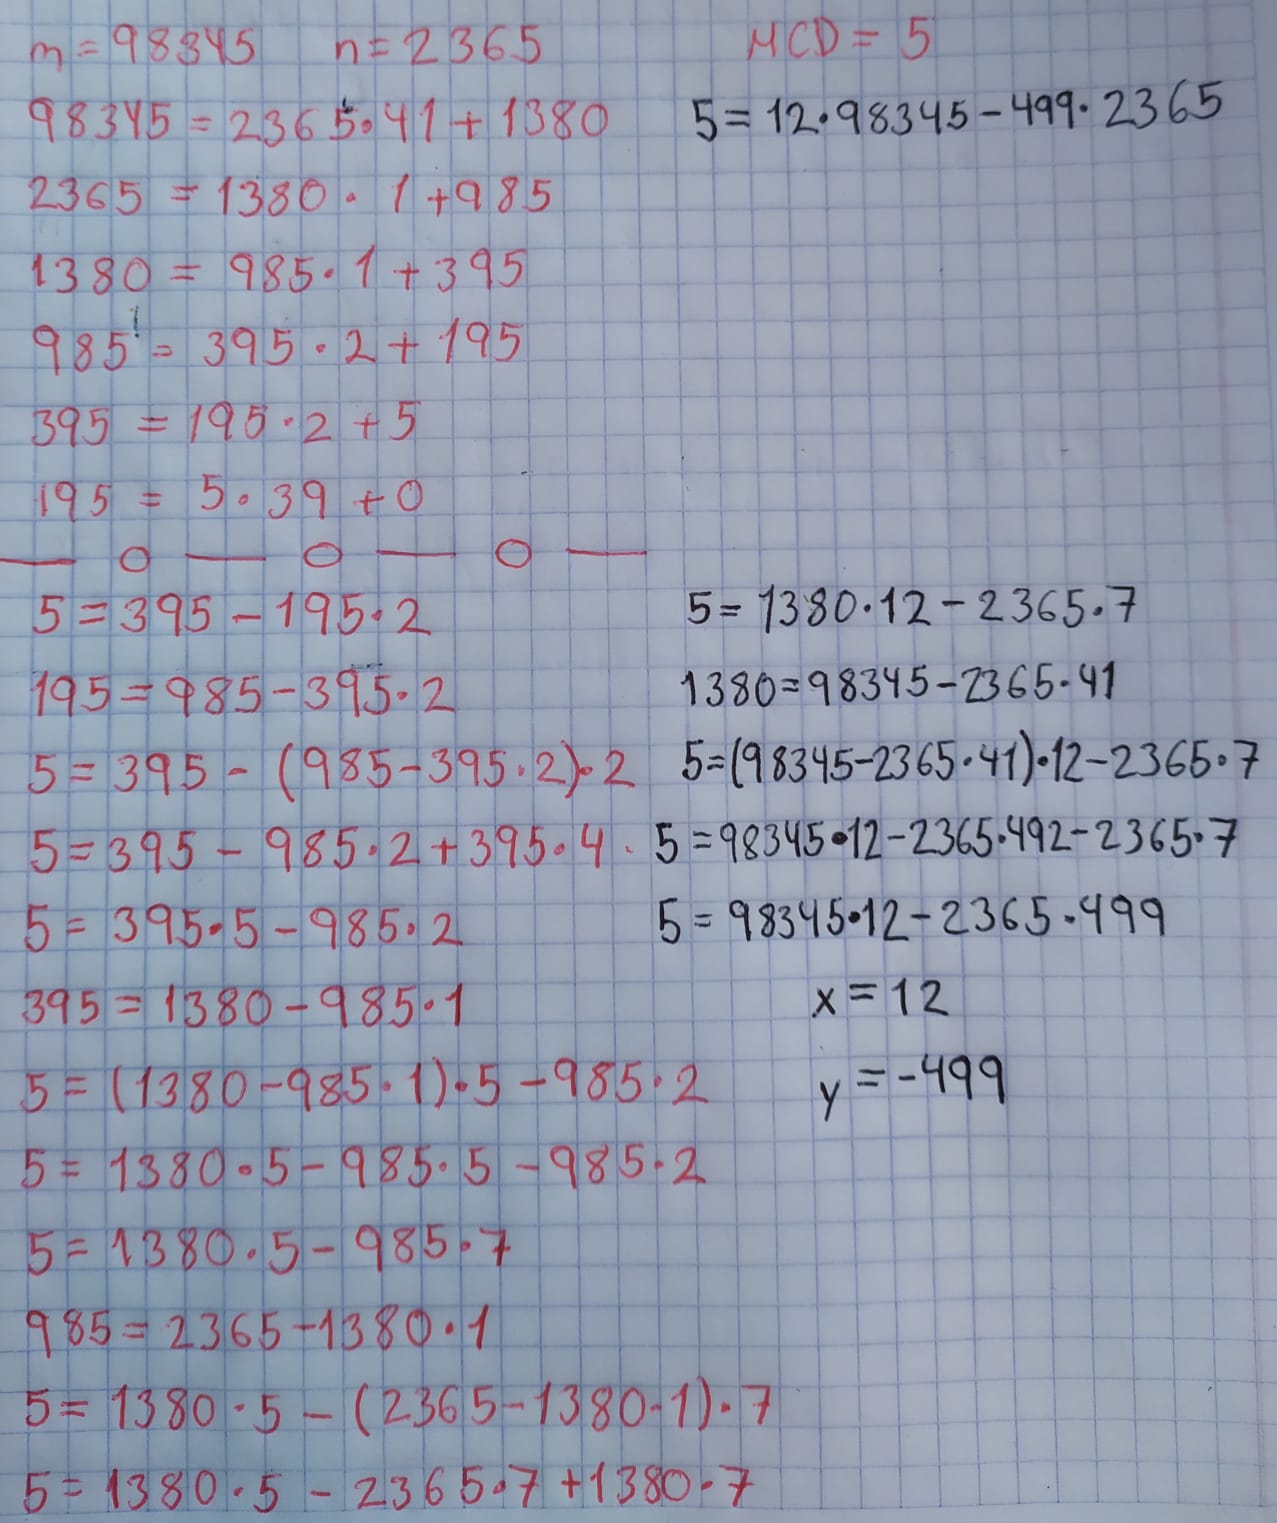 m = 98345 n = 2365 MCD = 5
98345 = 2365·41 + 1380
5 = 12·98345 - 499·2365
2365 = 1380 · 1 + 985
1380 = 985·1 + 395
985 = 395·2 + 195
395 = 195·2 + 5
195 = 5·39 + 0
5 = 395 - 195·2
195 = 985 - 395·2
5 = 395 - (985 - 395·2)·2
5 = 395 - 985·2 + 395·4
5 = 395·5 - 985·2
395 = 1380 - 985·1
5 = (1380 - 985·1)·5 - 985·2
5 = 1380·5 - 985·5 - 985·2
5 = 1380·5 - 985·7
985 = 2365 - 1380·1
5 = 1380·5 - (2365 - 1380·1)·7
5 = 1380·5 - 2365·7 + 1380·7
5 = 1380·12 - 2365·7
1380 = 98345 - 2365·41
5 = (98345 - 2365·41)·12 - 2365·7
5 = 98345·12 - 2365·492 - 2365·7
5 = 98345·12 - 2365·499
x = 12
y = -499